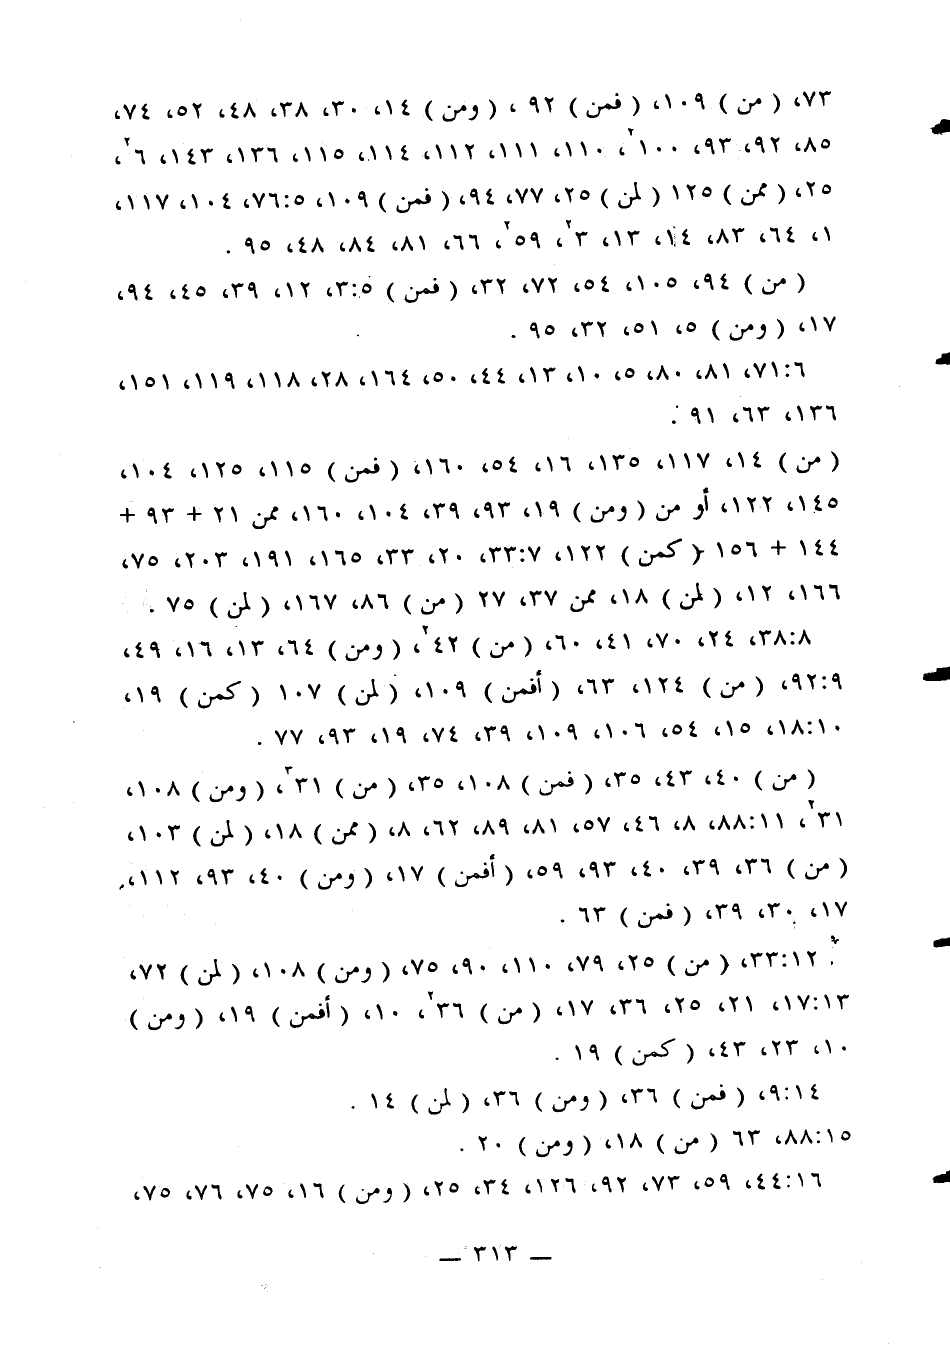 ٧٣، ( من ) ١٠٩، ( فمن ) ٩٢ ، ( ومن ) ١٤، ٣٠، ٣٨، ٤٨، ٥٢، ٧٤،
٨٥، ٩٢، ٩٣، ١٠٠٢، ١١٠، ١١١، ١١٢، ١١٤، ١١٥، ١٣٦، ١٤٣، ٦٢،
٢٥، ( ممن ) ١٢٥ ( لمن ) ٢٥، ٧٧، ٩٤، ( فمن ) ١٠٩، ٧٦:٥، ١٠٤، ١١٧،
١، ٦٤، ٨٣، ١٤، ١٣، ٣٢، ٥٩٢، ٦٦، ٨١، ٨٤، ٤٨، ٩٥ .
( من ) ٩٤، ١٠٥، ٥٤، ٧٢، ٣٢، ( فمن ) ٣:٥، ١٢، ٣٩، ٤٥، ٩٤،
١٧، ( ومن ) ٥، ٥١، ٣٢، ٩٥ .
٧١:٦، ٨١، ٨٠، ٥، ١٠، ١٣، ٤٤، ٥٠، ١٦٤، ٢٨، ١١٨، ١١٩، ١٥١،
١٣٦، ٦٣، ٩١ .
( من ) ١٤، ١١٧، ١٣٥، ١٦، ٥٤، ١٦٠، ( فمن ) ١١٥، ١٢٥، ١٠٤،
١٤٥، ١٢٢، أو من ( ومن ) ١٩، ٩٣، ٣٩، ١٠٤، ١٦٠، ممن ٢١ + ٩٣ +
١٤٤ + ١٥٦ ( كمن ) ١٢٢، ٣٣:٧، ٢٠، ٣٣، ١٦٥، ١٩١، ٢٠٣، ٧٥،
١٦٦، ١٢، ( لمن ) ١٨، ممن ٣٧، ٢٧ ( من ) ٨٦، ١٦٧، ( لمن ) ٧٥ .
٣٨:٨، ٢٤، ٧٠، ٤١، ٦٠، ( من ) ٤٢٢، ( ومن ) ٦٤، ١٣، ١٦، ٤٩،
٩٢:٩، ( من ) ١٢٤، ٦٣، ( أفمن ) ١٠٩، ( لمن ) ١٠٧ ( كمن ) ١٩،
١٨:١٠، ١٥، ٥٤، ١٠٦، ١٠٩، ٣٩، ٧٤، ١٩، ٩٣، ٧٧ .
( من ) ٤٠، ٤٣، ٣٥، ( فمن ) ١٠٨، ٣٥، ( من ) ٣١٣، ( ومن ) ١٠٨،
٣١٢، ٨٨:١١، ٨، ٤٦، ٥٧، ٨١، ٨٩، ٦٢، ٨، ( ممن ) ١٨، ( لمن ) ١٠٣،
( من ) ٣٦، ٣٩، ٤٠، ٩٣، ٥٩، ( أفمن ) ١٧، ( ومن ) ٤٠، ٩٣، ١١٢،
١٧، ٣٠، ٣٩، ( فمن ) ٦٣ .
٣٣:١٢، ( من ) ٢٥، ٧٩، ١١٠، ٩٠، ٧٥، ( ومن ) ١٠٨، ( لمن ) ٧٢،
١٧:١٣، ٢١، ٢٥، ٣٦، ١٧، ( من ) ٣٦٢، ١٠، ( أفمن ) ١٩، ( ومن )
١٠، ٢٣، ٤٣، ( كمن ) ١٩ .
٩:١٤، ( فمن ) ٣٦، ( ومن ) ٣٦، ( لمن ) ١٤ .
٨٨:١٥، ٦٣ ( من ) ١٨، ( ومن ) ٢٠ .
٤٤:١٦، ٥٩، ٧٣، ٩٢، ١٢٦، ٣٤، ٢٥، ( ومن ) ١٦، ٧٥، ٧٦، ٧٥،
— ٣١٣ —